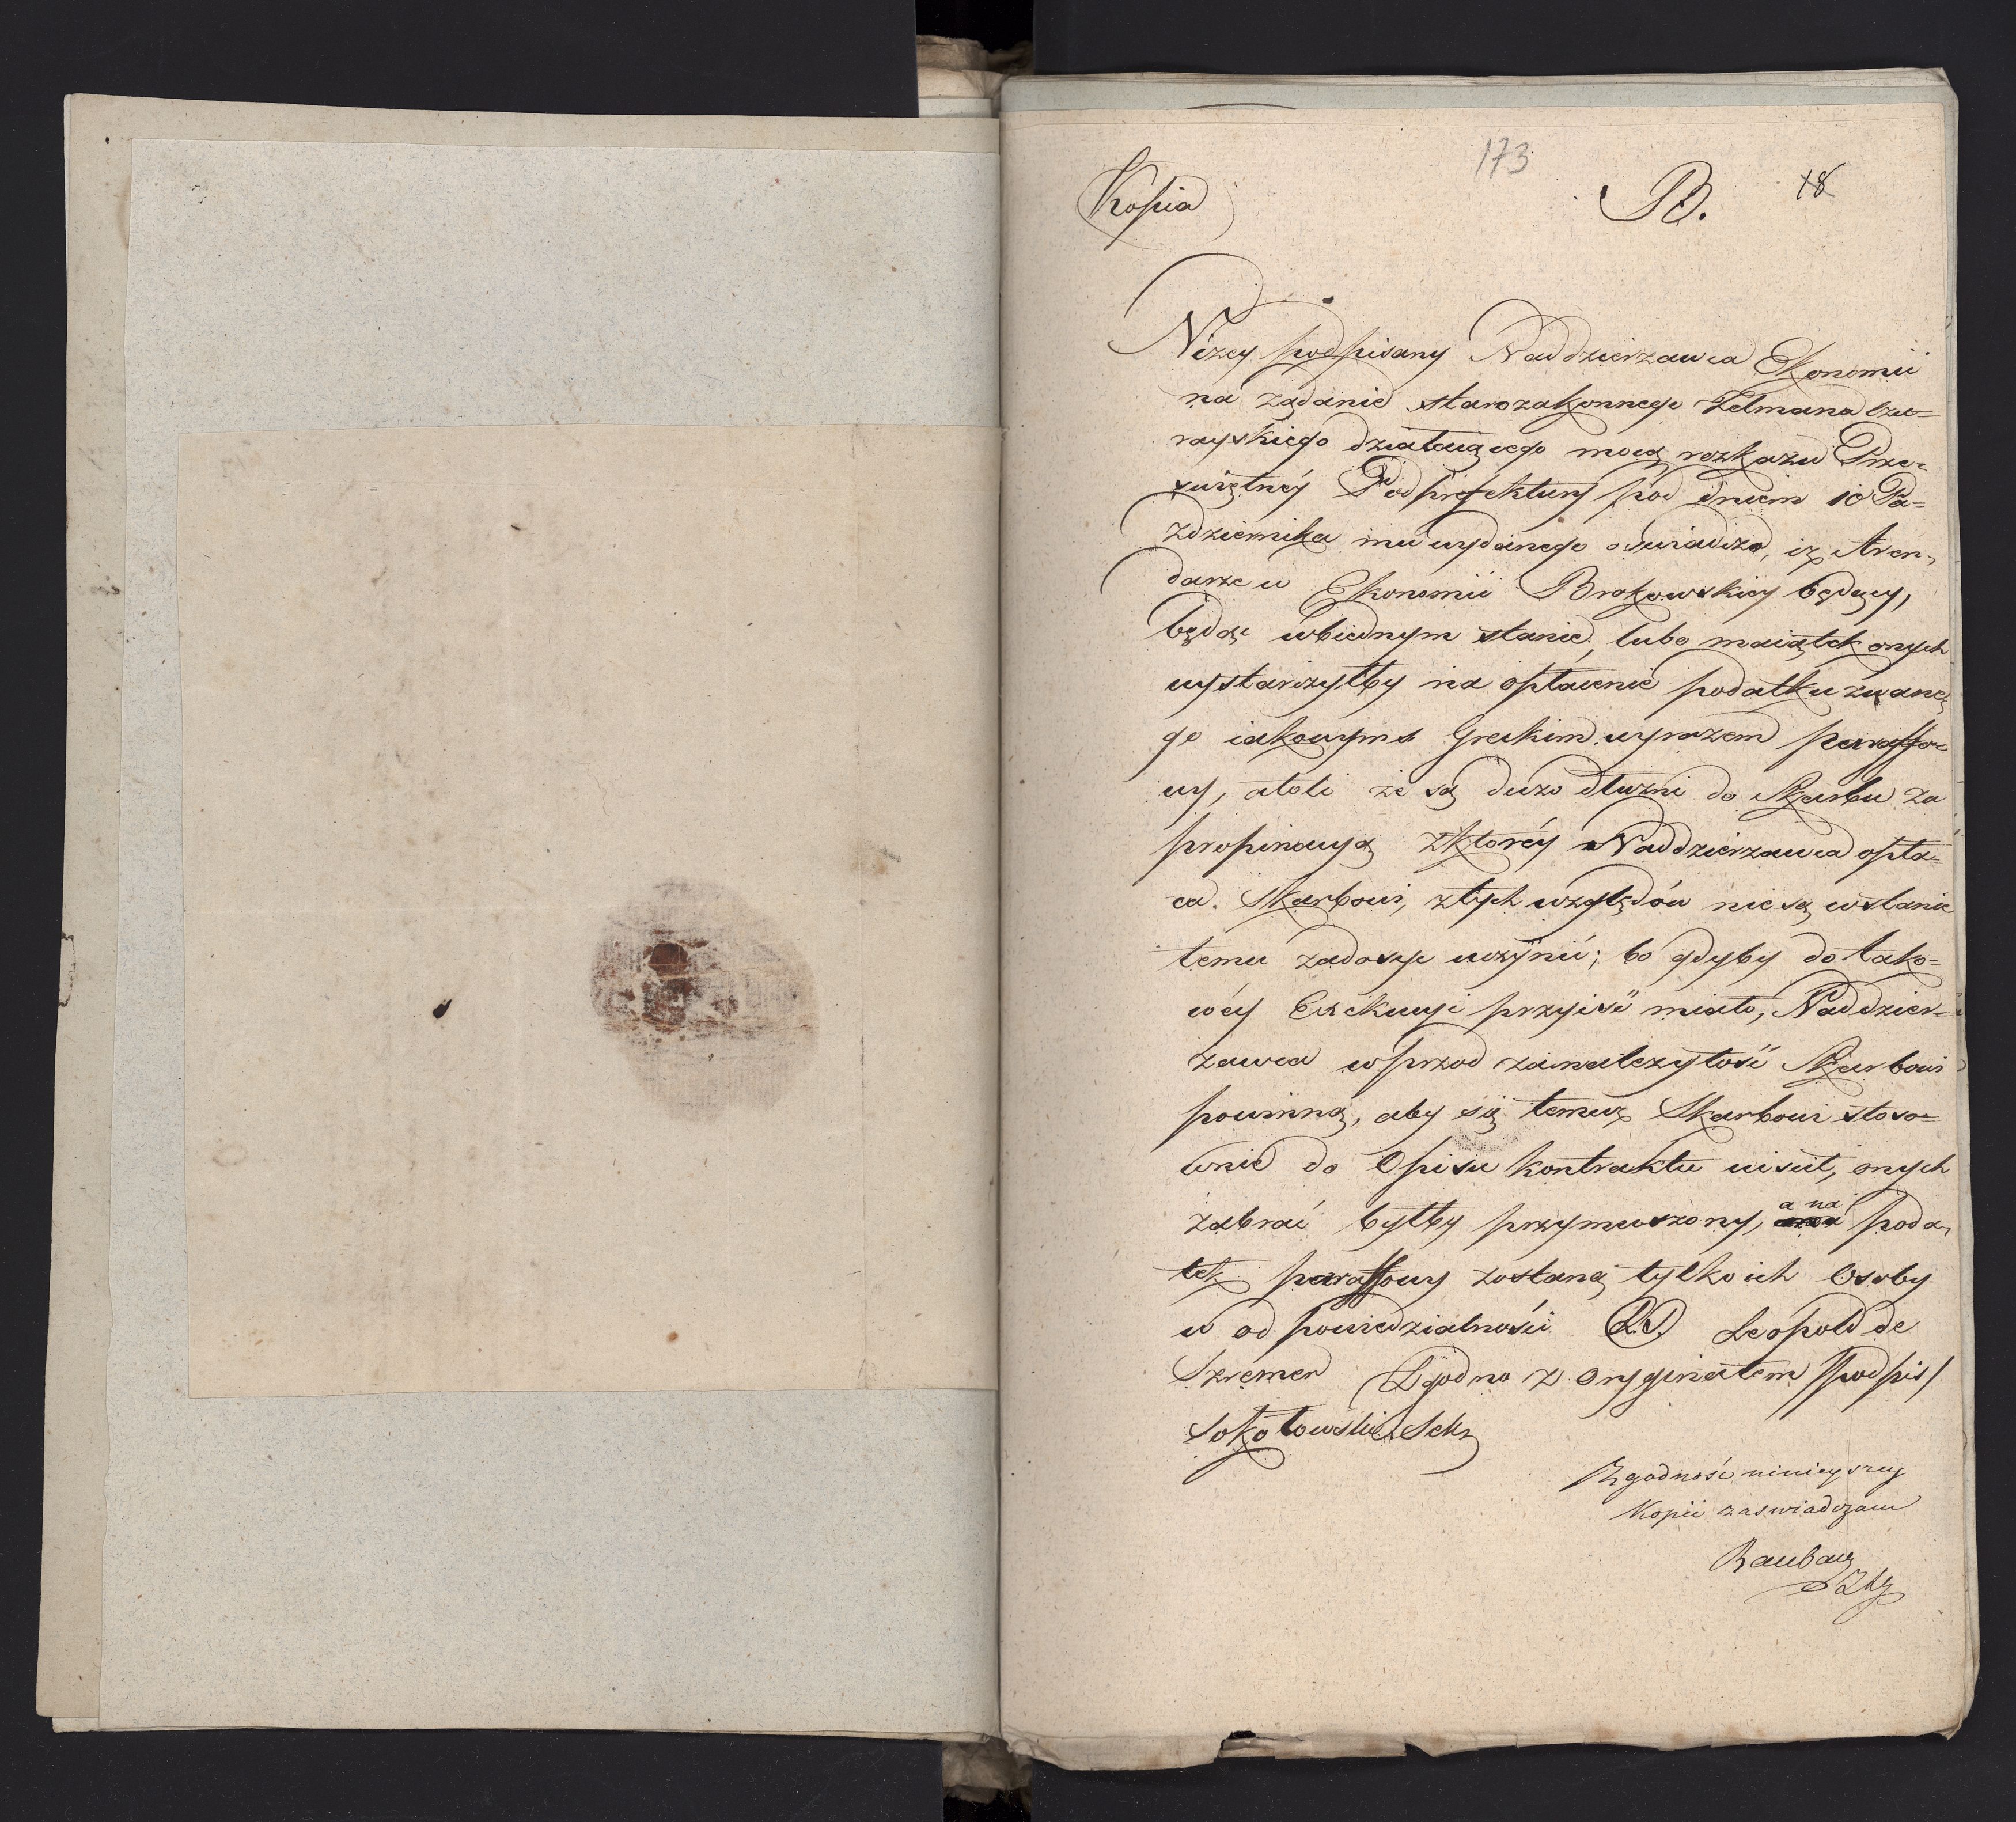 173
Kopia B. 18
Niżey podpisany Naddzierzawca Ekonomii
na żądanie starozakonnego Zelmana
rayskiego działaiącego mocą rozkazu Prze=
świętnéy Podprefektury pod dniem 10 Pa=
ździernika mu wydanego oswiadcza, iż Aren=
darze w Ekonomii Brokowskiey będący,
będąc wbiednym stanie, lubo maiątek onych
wystarczyłby na opłacenie podatku zwane=
go iakowyms Greckim wyrazem
wy, atoli że są dużo dłużni do Skarbu za
propinacyą zktoréy Naddzierzawca opła=
ca Skarbowi, ztych względów nie są wstanie
temu zadosyc uczynić; bo gdyby do tako=
wéy Exekucyi przyiść miało, Naddzier=
zawca wprzod zanależytość Skarbowi
powinną, aby się temuż Skarbowi stoso=
wnie do Opisu kontraktu uiścił, onych
zabrać byłby przymuszony, a na poda=
tek zostaną tylko ich Osoby
w odpowiedzialności (LS) Leopold de
Szremer Zgodno z oryginałem /podpis/
Sokołowski Sekr
Zgodność ninieyszey
Kopii zaswiadczam